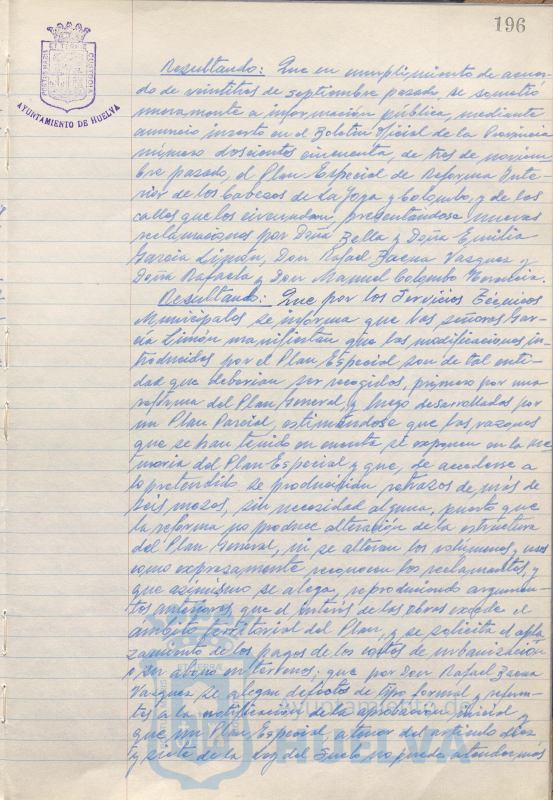 196
PORTUS MARIS ET TERRE CUSTODIA
AYUNTAMIENTO DE HUELVA
Resultando: Que en cumplimiento de acuer-
do de veintitres de septiembre pasado, se sometió
nuevamente a información pública, mediante
anuncio inserto en el Boletín Oficial de la Provincia
número doscientos cincuenta, de tres de noviem
bre pasado, el Plan Especial de Reforma Inte-
rior de los Cabezos de La Joya y Colombo, y de las
calles que los circundan, presentándose nuevas
reclamaciones por Doña Bella y Doña Emilia
García Limón, Don Rafael Baena Vasquez y
Doña Rafaela y Don Manuel Colombo
Resultando: Que por los Servicios Técnicos
Municipales se informa que las señoras Gar-
cía Limón manifiestan que las modificaciones in-
troducidas por el Plan Especial son de tal enti-
dad que deberían ser recogidas, primero por una
reforma del Plan General, y luego desarrolladas por
un Plan Parcial, estimándose que las razones
que se han tenido en cuenta se exponen en la me-
moria del Plan Especial y que, de accederse a
lo pretendido se producirían retrazos de más de
seis meses, sin necesidad alguna, puesto que
la reforma no produce alteración de la estructura
del Plan General, ni se alteran los volúmenes, y usos
como expresamente reconocen los reclamantes, y
que asimismo se alega, reproduciendo argumen-
tos anteriores, que el interés de las obras excede el
ámbito territorial del Plan, y se solicita el apla-
zamiento de los pagos de los costes de urbanización
o su abono en terrenos; que por Don Rafael Baena
Vasquez se alegan defectos de tipo formal y referen-
tes a la notificación de la aprobación inicial y
que un Plan Especial, a tenor del artículo diez
y siete de la Ley del Suelo, no puede entendernos
Ayuntamiento de
HUELVA